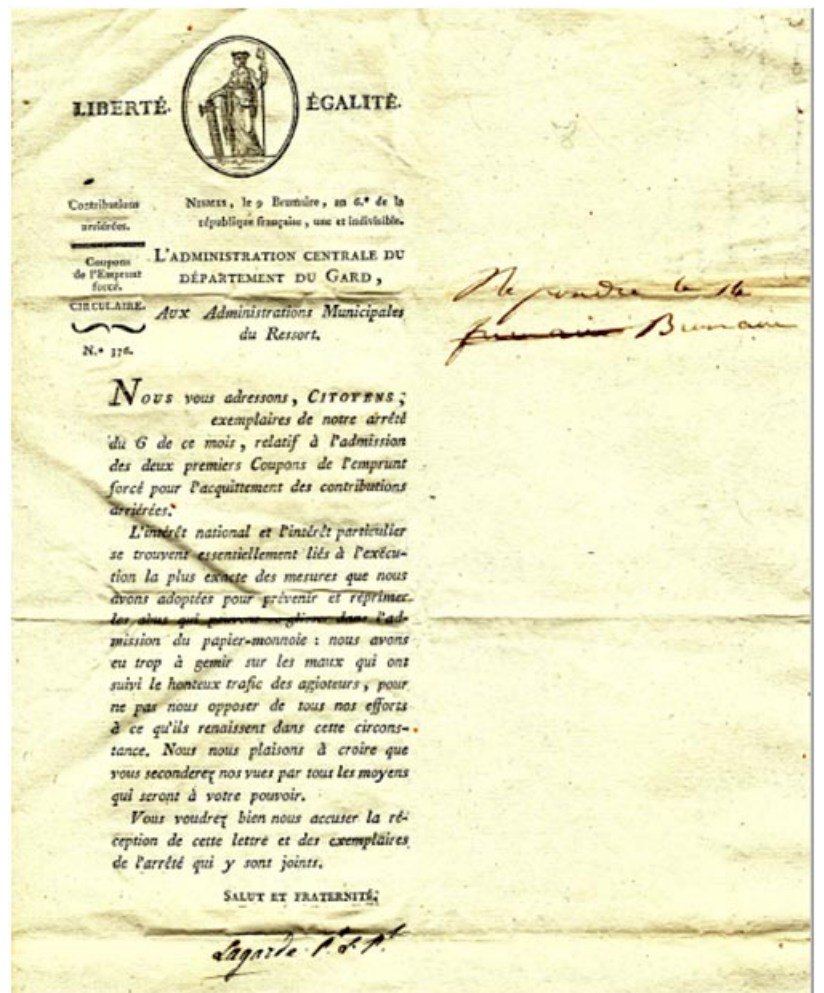 LIBERTÉ. ÉGALITÉ.
Contributions
arriérées.
Coupons
de l'Emprunt
forcé.
CIRCULAIRE.
N.° 376.
NISMES, le 9 Brumaire, an 6.e de la
république française, une et indivisible.
L'ADMINISTRATION CENTRALE DU
DÉPARTEMENT DU GARD,
Aux Administrations Municipales
du Ressort.
NOUS vous adressons, CITOYENS,
exemplaires de notre arrêté
du 6 de ce mois, relatif à l'admission
des deux premiers Coupons de l'emprunt
forcé pour l'acquittement des contributions
arriérées.
L'intérêt national et l'intérêt particulier
se trouvent essentiellement liés à l'exécu-
tion la plus exacte des mesures que nous
avons adoptées pour prévenir et réprimer
les abus qui peuvent se glisser dans l'ad-
mission du papier-monnoie : nous avons
eu trop à gemir sur les maux qui ont
suivi le honteux trafic des agioteurs, pour
ne pas nous opposer de tous nos efforts
à ce qu'ils renaissent dans cette circons-
tance. Nous nous plaisons à croire que
vous seconderez nos vues par tous les moyens
qui seront à votre pouvoir.
Vous voudrez bien nous accuser la ré-
ception de cette lettre et des exemplaires
de l'arrêté qui y sont joints.
SALUT ET FRATERNITÉ.
Lagarde
Repondre le 14
Brumaire